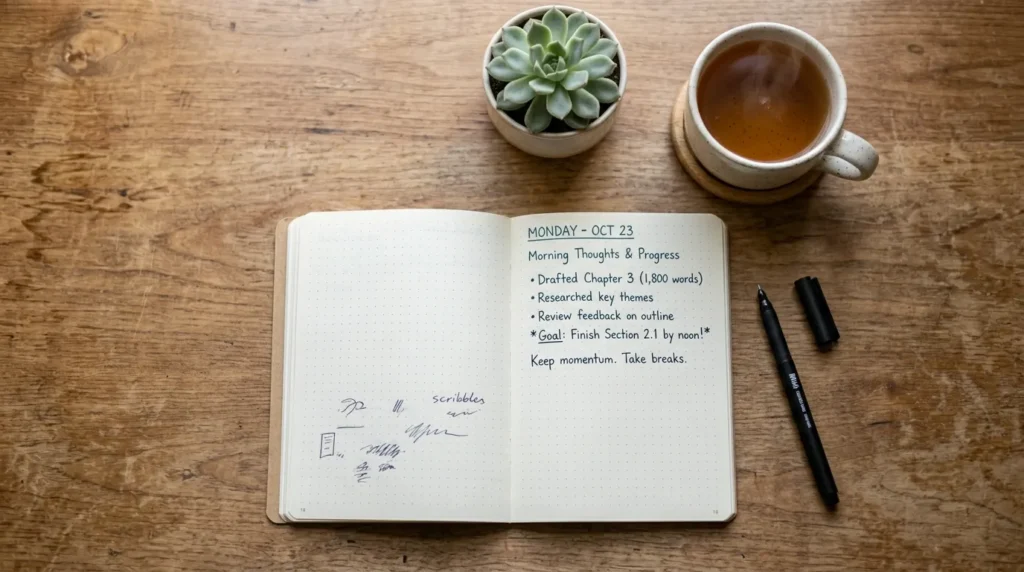 scribbles
MONDAY - OCT 23
Morning Thoughts & Progress
• Drafted Chapter 3 (1,800 words)
• Researched key themes
• Review feedback on outline
*Goal: Finish Section 2.1 by noon!*
Keep momentum. Take breaks.